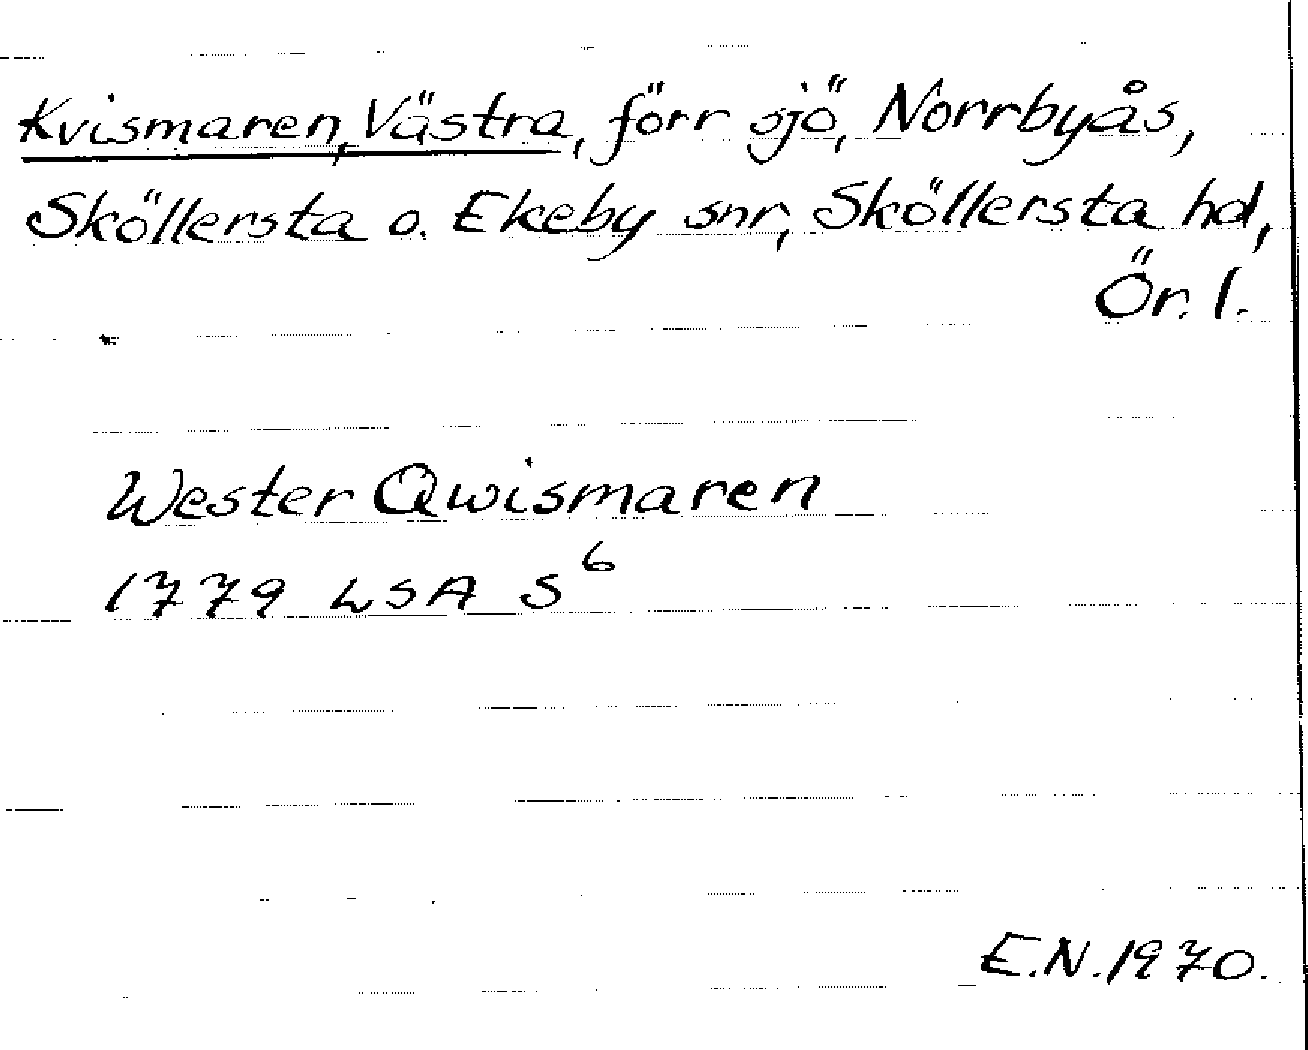 Kvismaren, Västra, förr sjö, Norrbyås,
Sköllersta o. Ekeby snr, Sköllersta hd,
Ör. l.
Wester Qwismaren
1779 LSA S⁶
E.N. 1970.